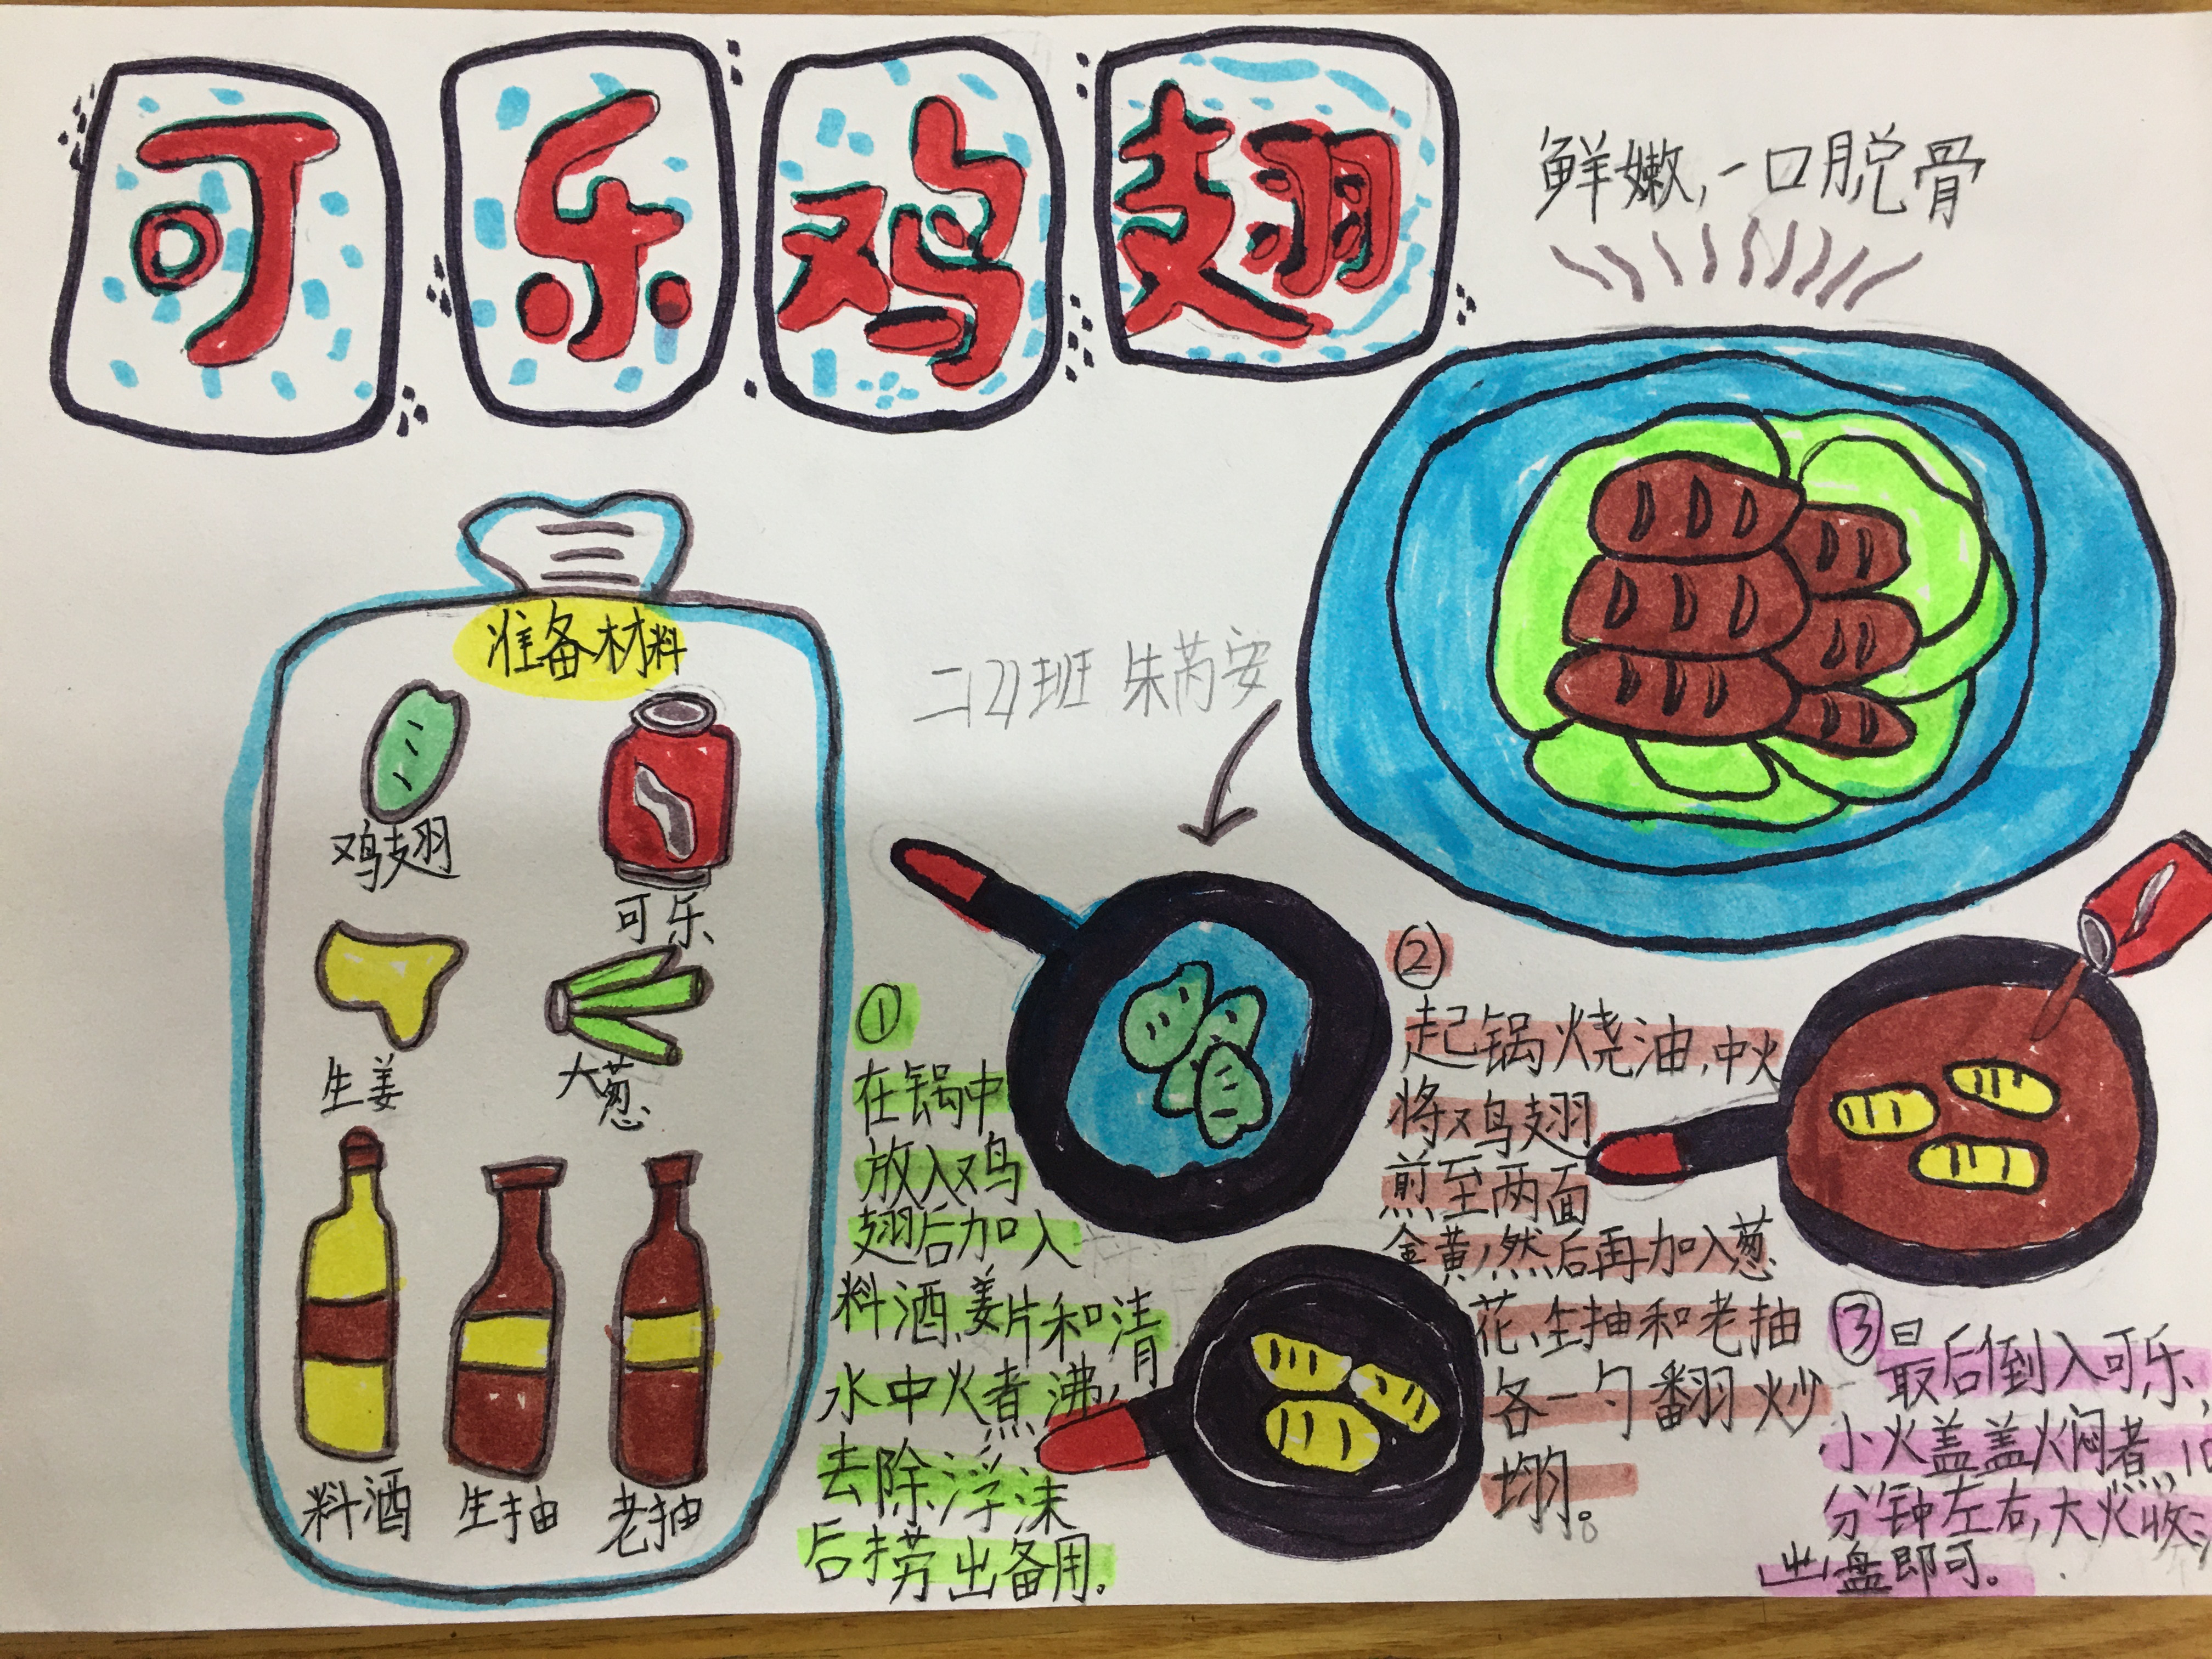 可乐鸡翅
鲜嫩,一口脱骨
准备材料
鸡翅 可乐
生姜 大葱
料酒 生抽 老抽
①
在锅中
放入鸡
翅后加入
料酒,姜片和清
水中火煮沸,
去除浮沫
后捞出备用.
②
起锅烧油,中火
将鸡翅
煎至两面
金黄,然后再加入葱
花,生抽和老抽
各一勺翻炒
均匀。
③ 最后倒入可乐,
小火盖盖火闷煮10
分钟左右,大火收
出盘即可。